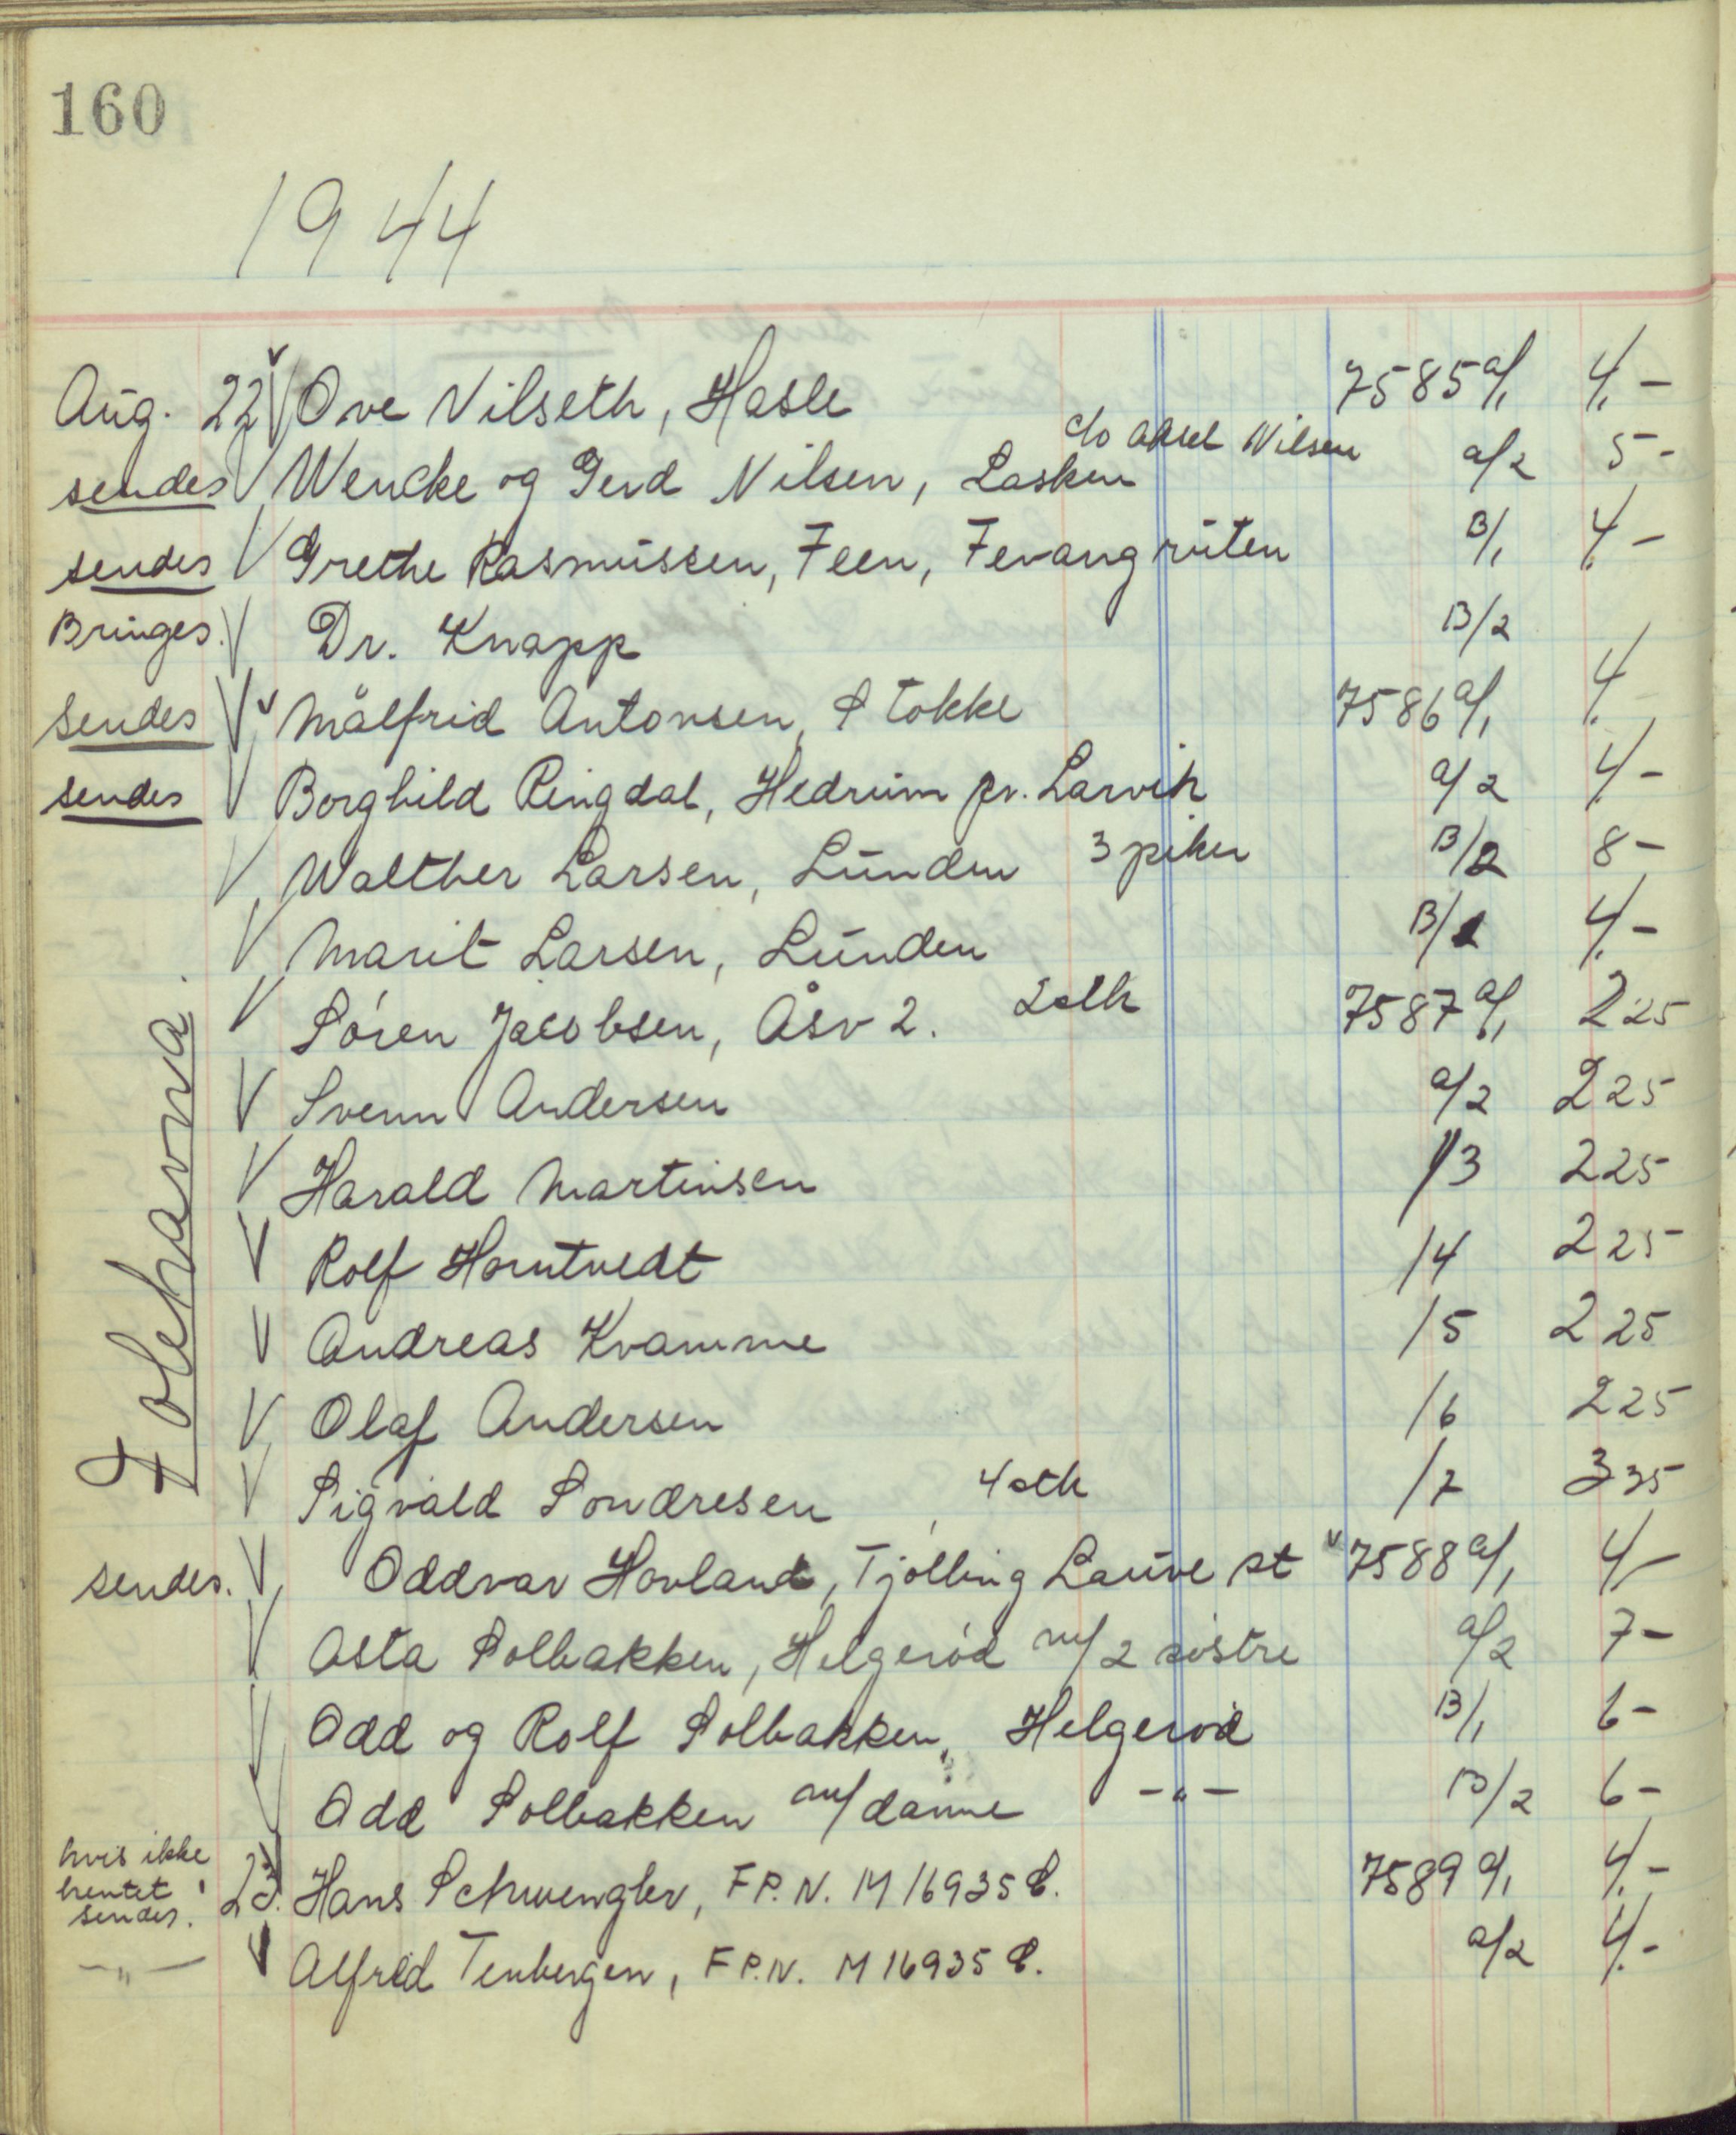 160
1944
Aug. 22 Ove Nilseth, Hasle 7585 a/1 4,-
sendes Wencke og Gerd Nilsen, Lasken c/o Aksel Nilsen a/2 5-
sendes Grethe Rasmussen, Feen, Fevangruten B/1 4,-
Bringes. Dr. Knapp B/2
sendes Målfrid Antonsen, S Tokke 7586 a/1 4,-
sendes Borghild Ringdal, Hedrum pr. Larvik a/2 4,-
Walther Larsen, Lunden 3 piker B/2 8-
Marit Larsen, Lunden B/1 4,-
Folehavna.
Søren Jacobsen, Åsv 2. 2 stk 7587 a/1 2 25
Svenn Andersen a/2 2 25
Harald Martinsen /3 2 25
Rolf Horntvedt /4 2 25
Andreas Kvamme /5 2 25
Olaf Andersen /6 2 25
Sigvald Sondresen 4 stk /7 3 35
sendes. Oddvar Hovland, Tjølling Lauve st 7588 a/1 4,-
Asta Solbakken, Helgerød m/2 søstre a/2 7-
Odd og Rolf Solbakken, Helgerød B/1 6-
Odd Solbakken m/dame -"- B/2 6-
hvis ikke
hentet
sendes.
23. Hans Schwengler, F.P.N. M 16935 C. 7589 a/1 4,-
-"- Alfred Tenbergen, F.P.N. M 16935 C. a/2 4,-